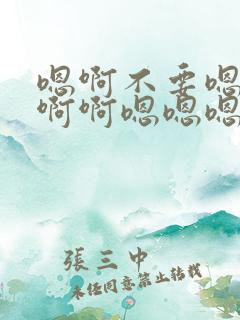 嗯啊不要嗯
啊啊嗯嗯嗯
張三中
未经同意禁止转载